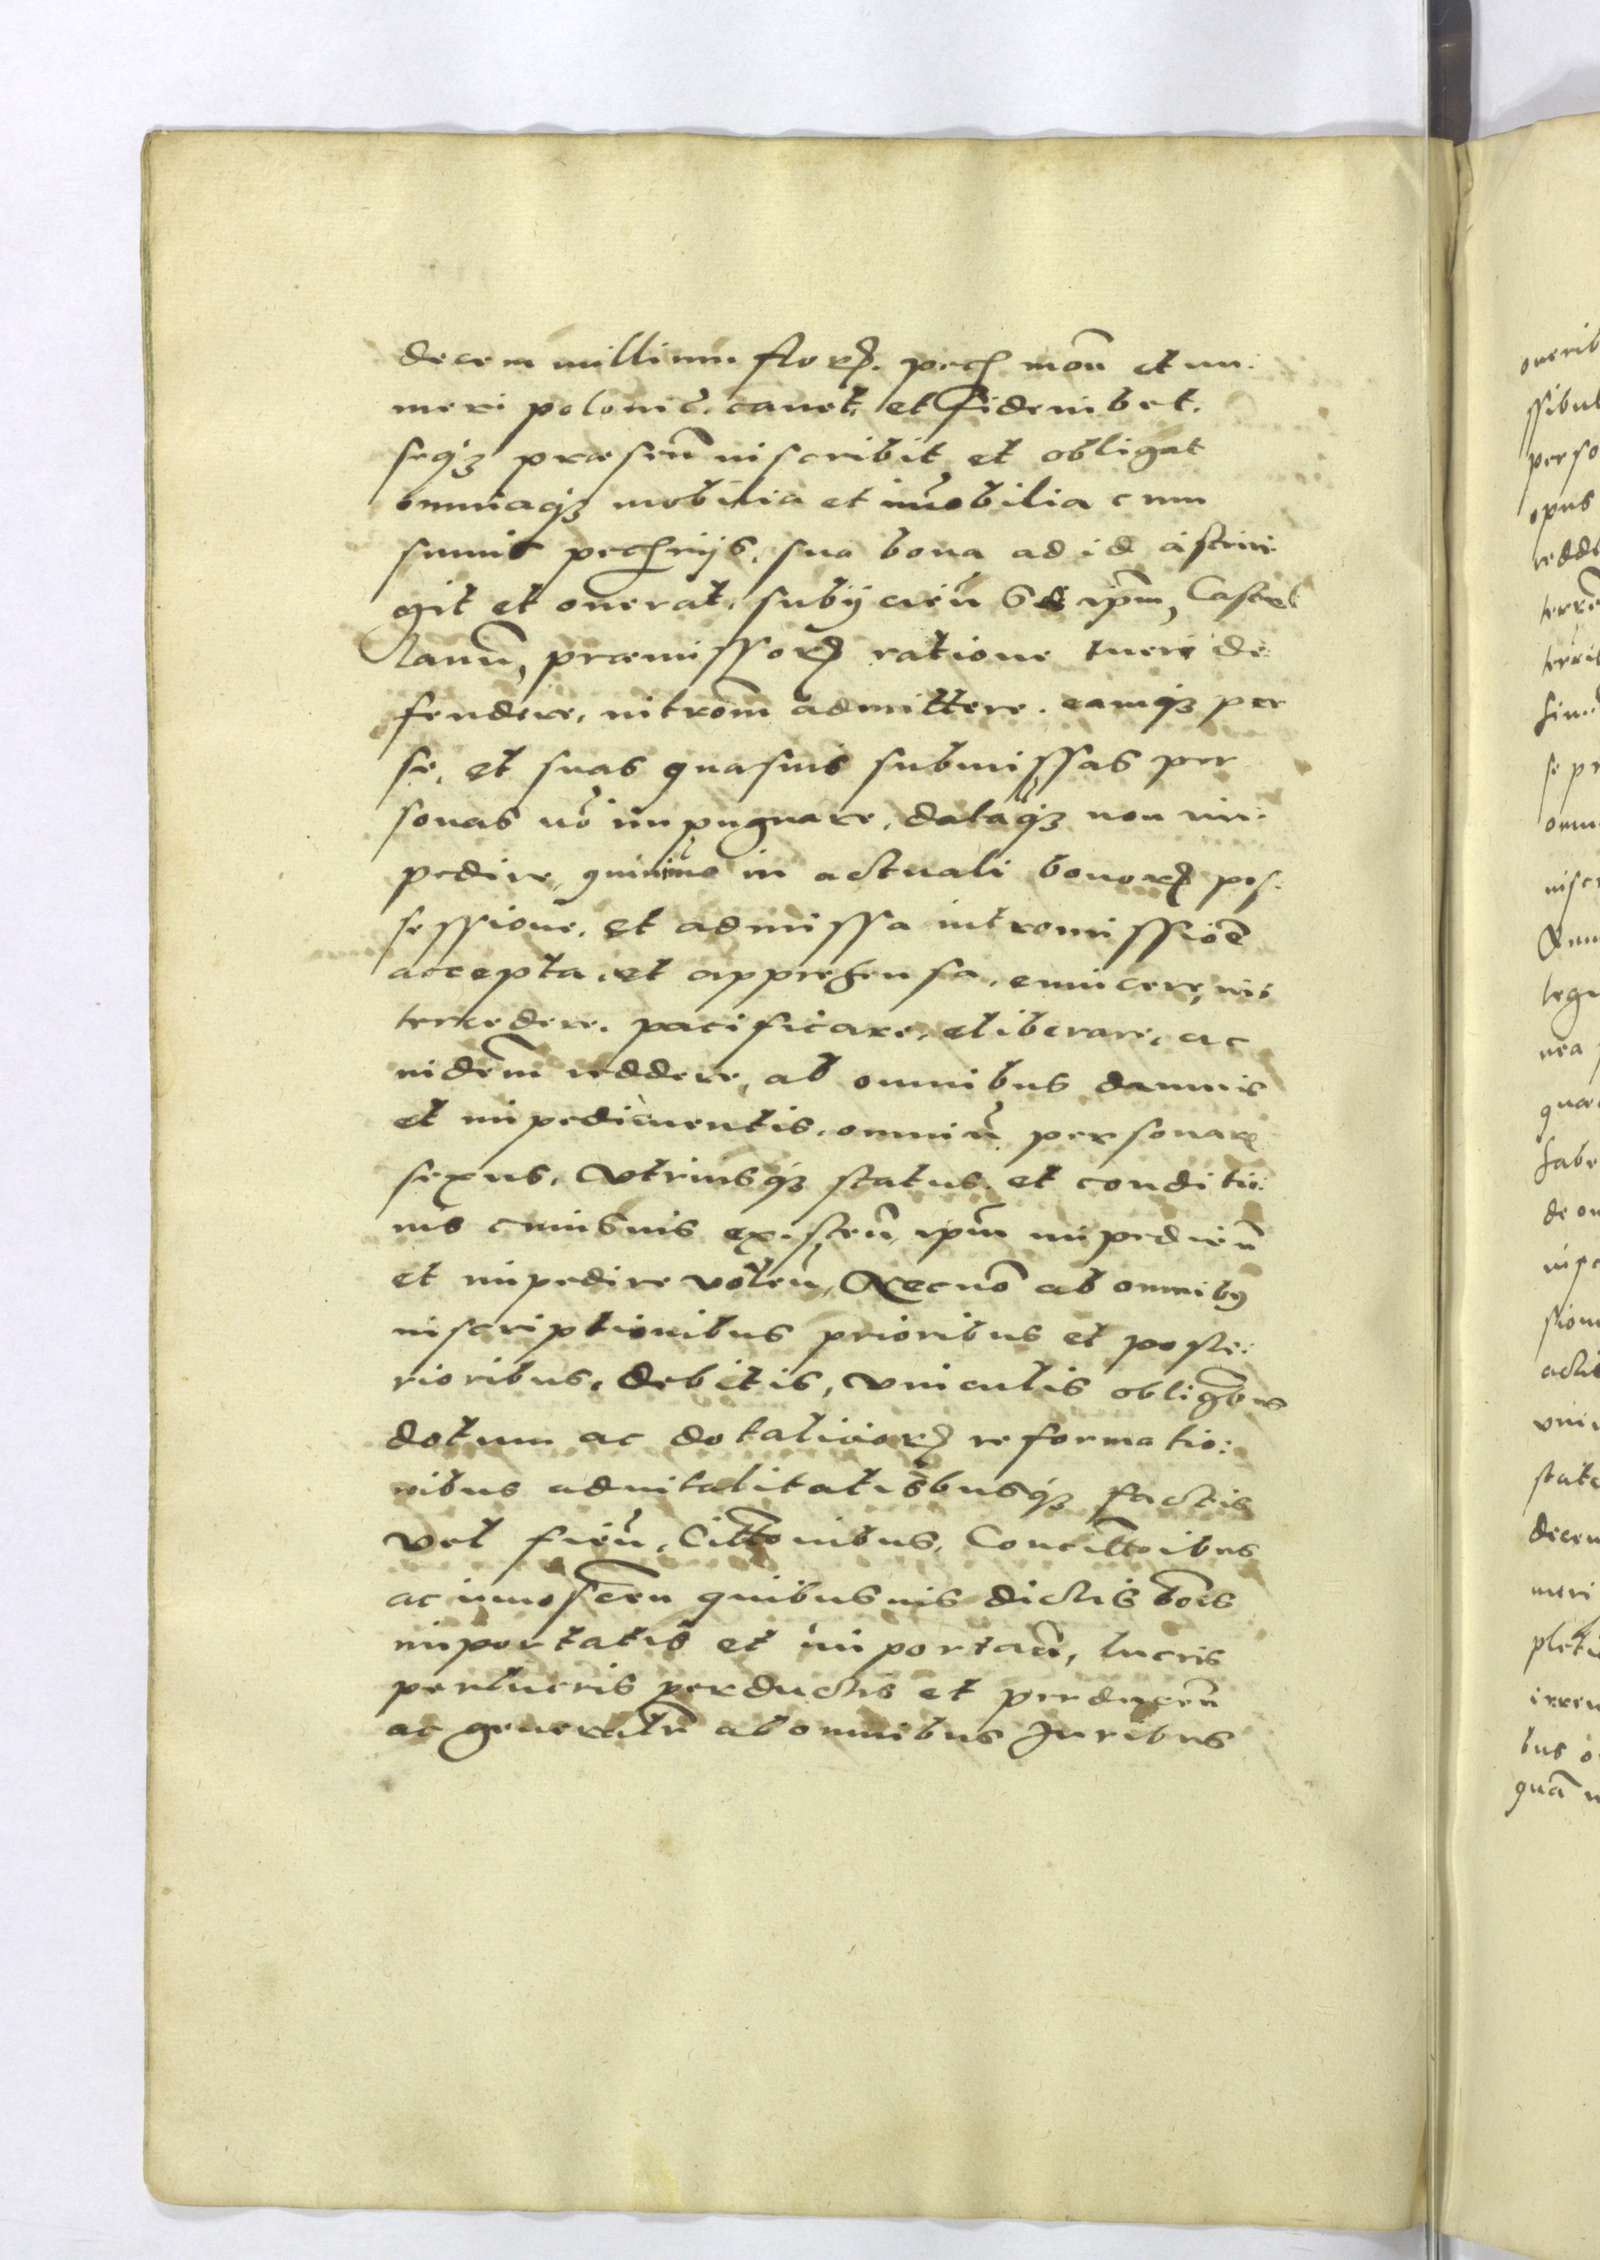 decem millium flor. pecū monū et nu:
meri polonic. cavet, et fidem ibet.
seqꝫ præsenū inscribit et obligat
omniaqꝫ mobilia et im̄obilia cum
sumis pecūrijs, sua bona ad id astrin:
git et onerat, subijcieñ Se ipm̄, Castel
lanū, præmissorꝫ ratione tueri de:
fendere, introm̄ admittere. eamqꝫ per
se, et suas quasuis submissas per
sonas nō impugnare, dataqꝫ non im:
pedire, quinim̄o in actuali bonorꝫ pos:
sessione, et admissa intromissiōe
accepta, et apprehensa, euincere, in
tercedere, pacificare, eliberare, ac
indem̄ reddere, ab omnibus damnis
et impedimentis, omniū personarꝫ
sexus, Vtriusqꝫ status, et conditio:
nis cuiusuis existeñ, ipm̄ impedieñ
et impedire voleñ, Necnō ab omnibꝰ
inscriptionibus prioribus et poste:
rioribus, debitis, vinculis obligāōbus
dotum ac dotaliciorꝫ reformatio:
nibus aduitalitatisbusqꝫ factis
vel fieñ, Cittōnibus, Concittōibus
ac iimosceñ quibusuis dictis bōis
importatis et importañ, lucris
perlucris perductis et perduceñ
ac generalr̄ ab omnibus Juribus